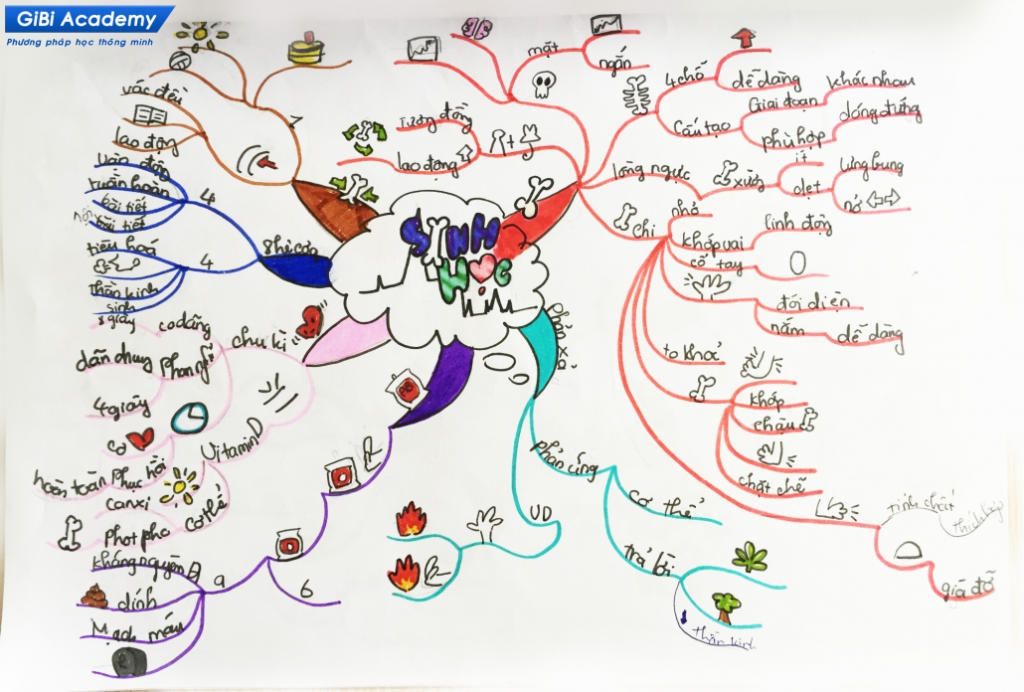 GiBi Academy
Phương pháp học thông minh
SINH
HỌC
mặt
ngắn
4 chỗ
dễ dàng
Cấu tạo
Giai đoạn
khác nhau
phù hợp
đóng đứng
lồng ngực
xương
ít
dẹt
lưng bụng
nở
chi
nhỏ
khớp vai
linh động
cổ tay
đối diện
nắm
dễ dàng
to khoẻ
khớp
chậu
chặt chẽ
tính chất
thích hợp
giá đỡ
Tương đồng
lao động
7
vác đều
lao động
ghi cơ
4
vận động
tuần hoàn
bài tiết
nội tiết
4
tiêu hoá
thần kinh
sinh
giây
chu kì
co dãng
phan nhĩ
dẫn chung
4 giây
cơ
hoàn toàn phục hồi
Vitamin D
canxi
cơ thể
Phot pho
a
6
kháng nguyên A
dính
Mạch máu
Phản xạ
phản ứng
cơ thể
trả lời
thần kinh
VD